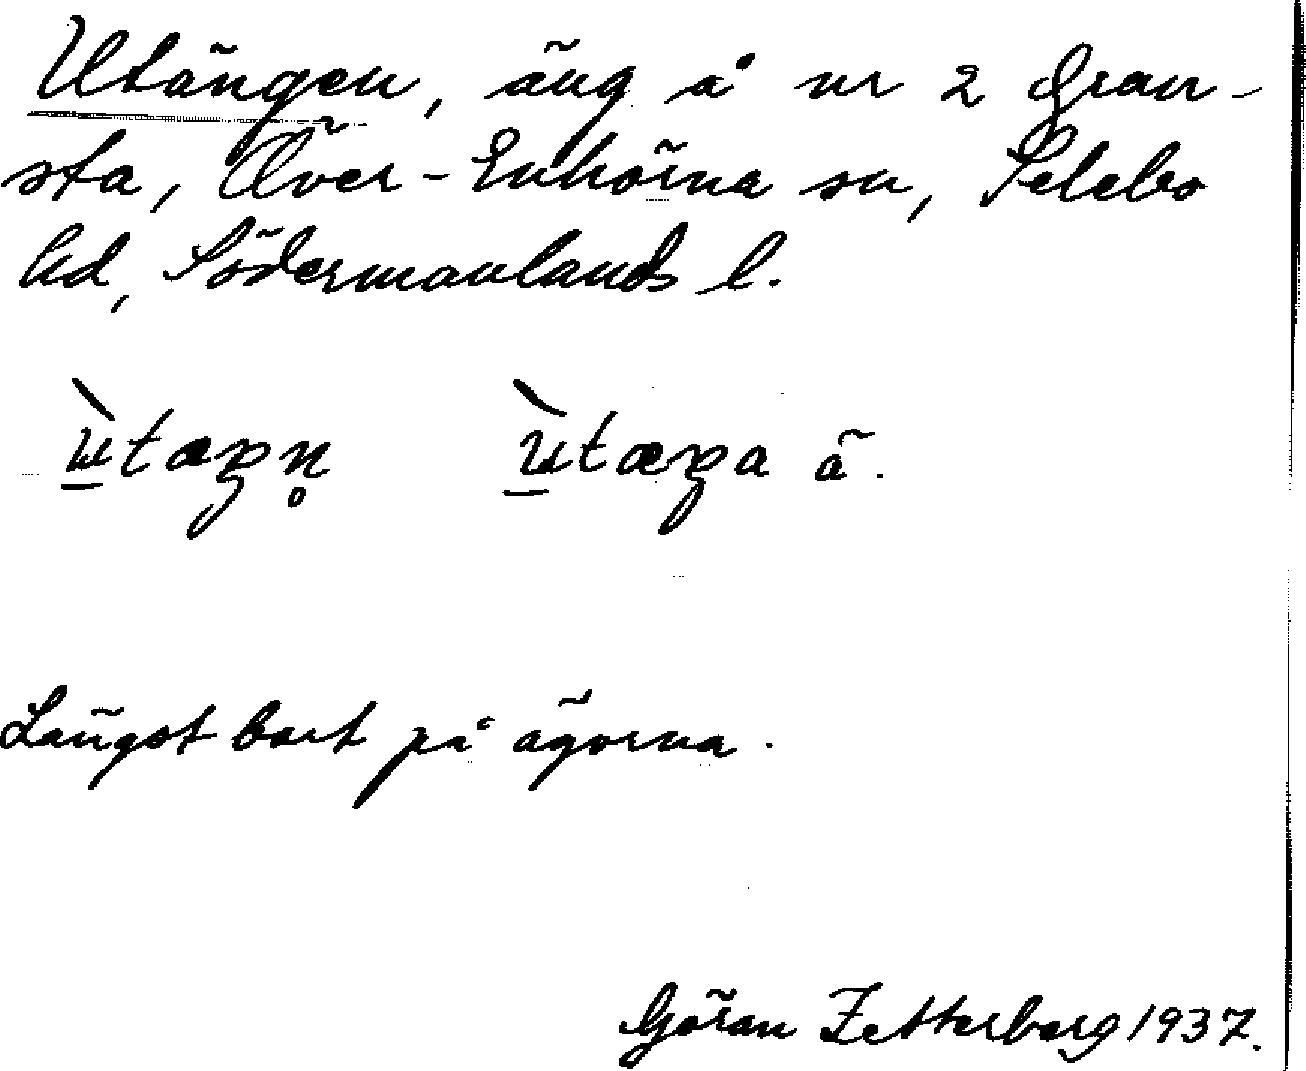 Utängen, äng å nr 2 Gran-
sta, Över-Enhörna sn, Selebo
hd, Södermanlands l.
ùtæŋn̥ ùtæŋa ä.
Längst bort på ägorna.
Göran Zetterberg 1937.